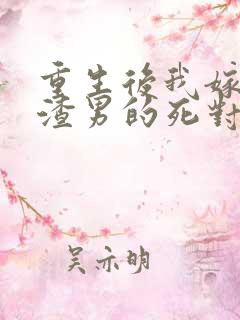 重生後我嫁
渣男的死對
吳示明